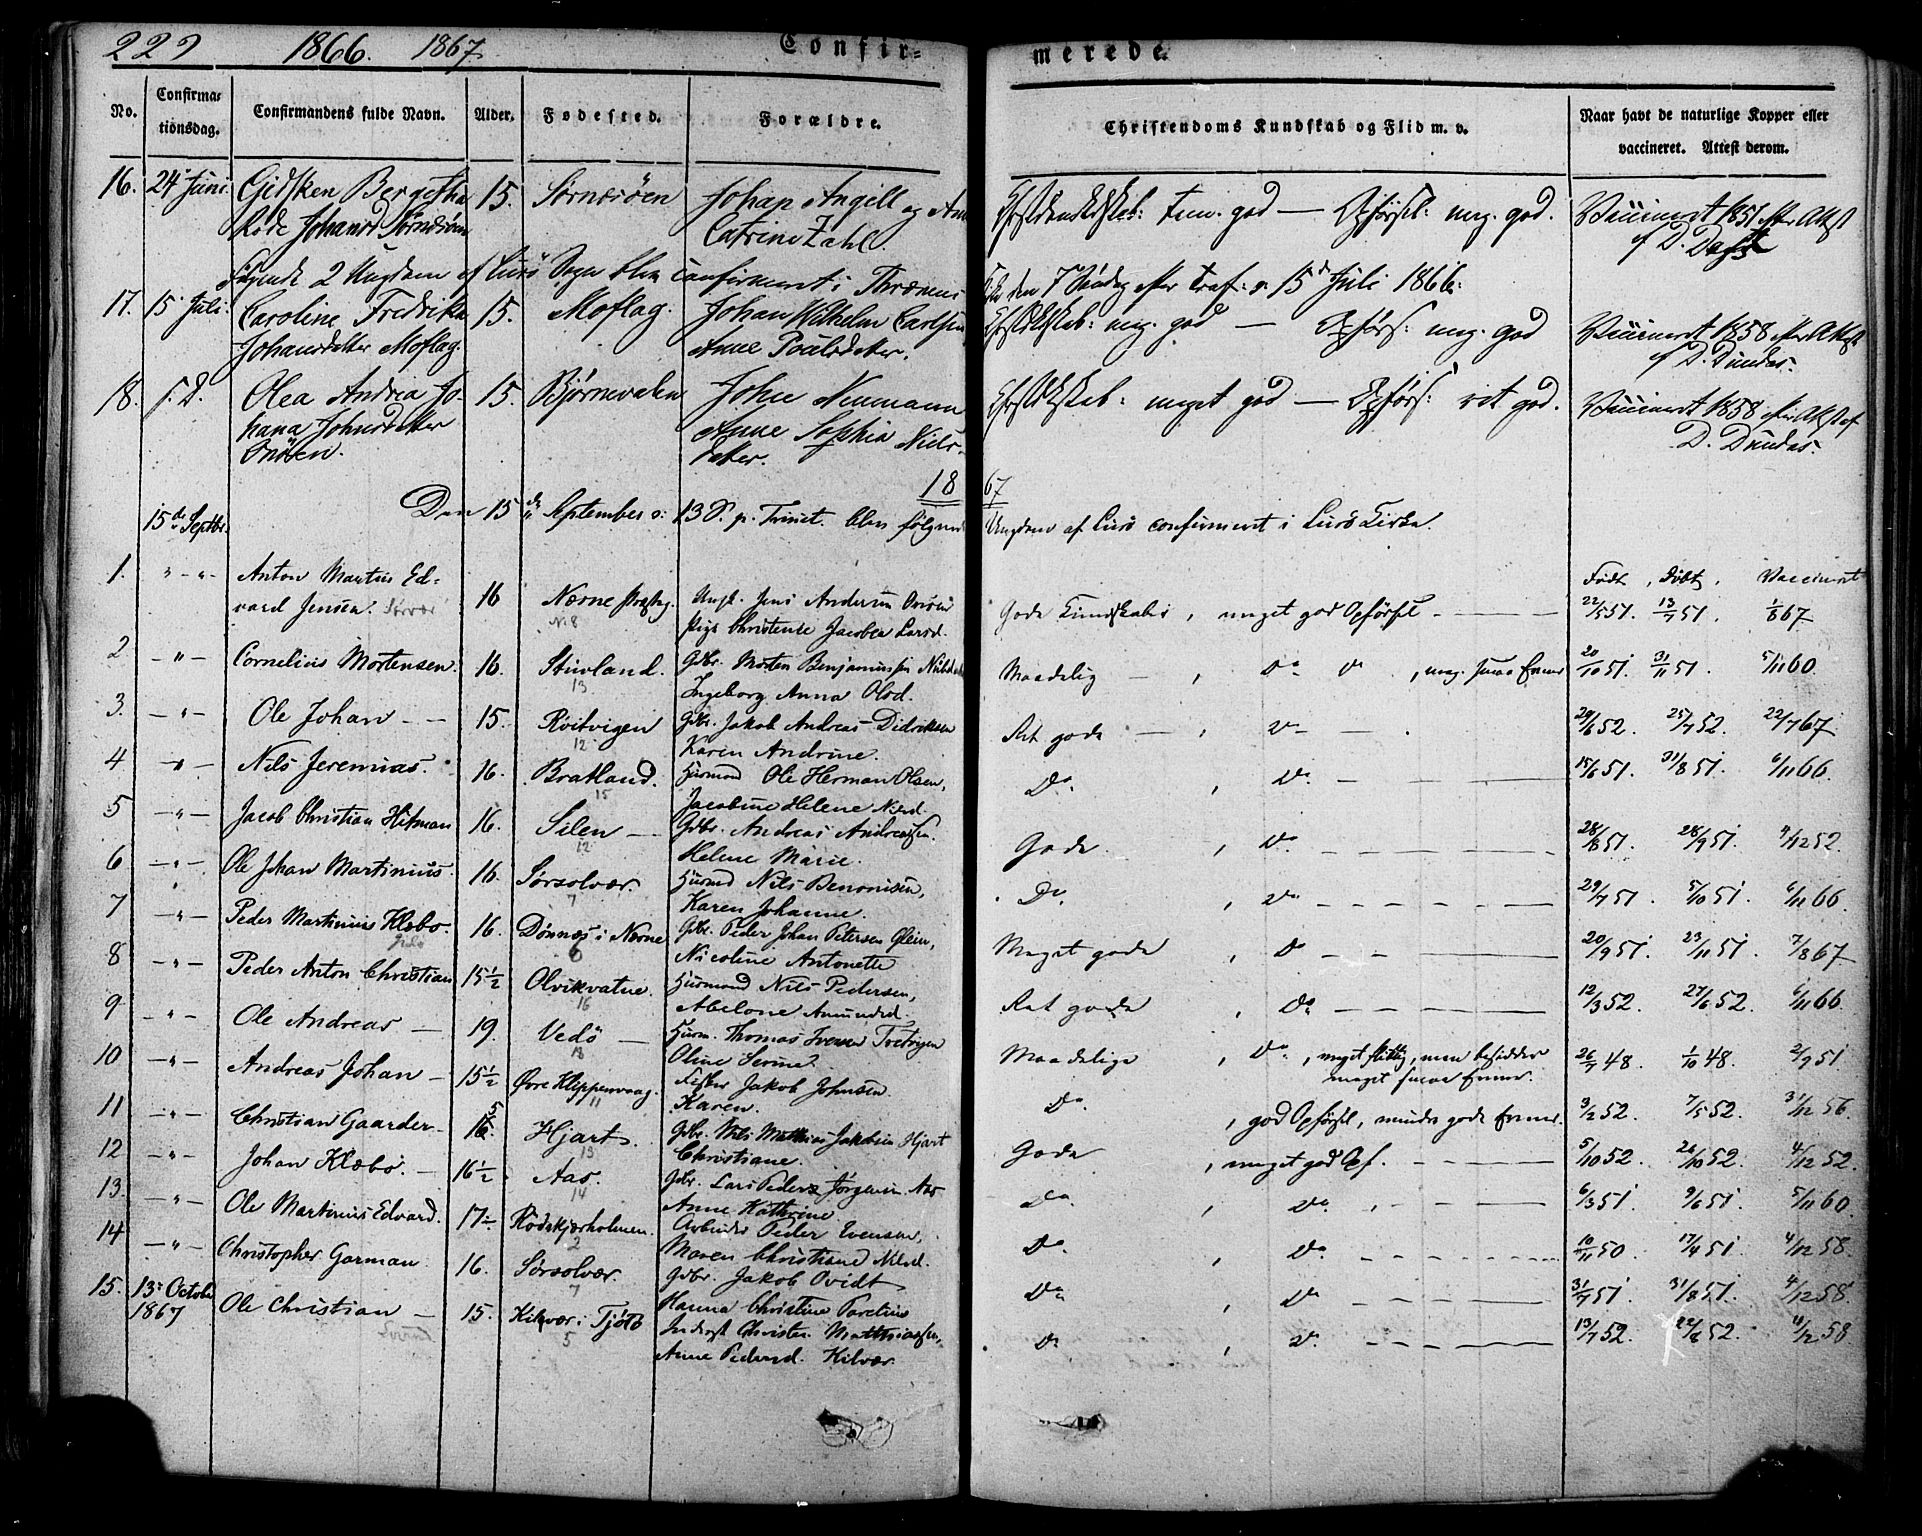 222 1866. 1867. Confir= merede.
No. Confirma= tionsdag. Confirmandens fulde Navn. Alder. Fødested. Forældre. Christendoms Kundskab og Flid m. v. Naar havt de naturlige Kopper eller vaccineret. Attest derom.
16. 24 Juni. Gidsken Bergetha 15. Sørnesøen Johan Angell og
Catrine Zahl. god — Opførsel: meg. god. 1851 efter Attest
af D.
2 Ungdom af Lurø Sogn blev confirmeret i Thrænens den 7 Søndag efter Tref: 15 Juli 1866:
17. 15 Juli. Caroline Fredrikke 15. Moflag. Johan Wilhelm Carlsen meg. god — Opførs: meg. god 1858 efter Attest
Johansdatter Moflag. Anne Poulsdatter. af D. Dundas.
18. s. D. Olea Andrea Jo- 15. Bjørnevalen Johan Neumann meget god — Opførs: ret god. 1858 efter Attest af
hana Johnsdatter Anne Sophia Niels- D. Dundas.
datter.
1867
15de Septbr. Den 15de September o: 13 S. p. Trinit. blev følgende Ungdom af Lurø confirmeret i Lurø Kirke.
Født, Døbt, Vaccineret
1. " - " - Anton Martin Ed- Ungk. Jens Andersen
vard Jensen. 16 Nærne Præsteg. Pige Christense Jacobea Larsd. Gode Kundskaber, meget god Opførsel — 22/5 51. 13/7 51. 1/8 67
2 - " - Cornelius Mortensen. 16. Stuvland. Gdbr. Morten Benjaminsen Maadelig — , do do, meg. smaa Evner 20/10 51. 31/11 51. 5/11 60.
13 Ingeborg Anna Olsd.
3. - " - Ole Johan - - 15. Røitvigen Gdbr. Jakob Andreas Didriksen Ret gode — , do — . 29/6 52. 25/7 52. 22/7 67
12 Karen Andrine.
4 - " - Nils Jeremias. 16. Bratland. Husmand Ole Herman Olsen, Do. , Do. - - 15/6 51. 31/8 51. 6/11 66.
15 Jacobine Helene Nilsd.
5 - " - Jacob Christian Hitman 16. Silen — Gdbr. Andreas Andreassen. Gode. , Do. - - 28/8 51. 28/9 51. 4/12 52.
12 Helene Marie.
6 - " - Ole Johan Martinius. 16. Sørsolvær. Husmd Nils Benonisen, Do. , do - - 29/7 51. 5/10 51. 6/11 66.
7 Karen Johanne.
7 - " - Peder Martinius Klæbo 16. Dønnes i Nærne Gdbr. Peder Johan Petersen Meget gode , Do - - 20/9 51. 23/11 51. 7/8 67
6 Nicoline Antonette
8 - " - Peder Anton Christian 15½ Olvikvatne. Husmand Nils Pedersen, Ret gode , Do - - 12/3 52. 27/6 52. 6/11 66.
16 Abelone Amundsd.
9 - " - Ole Andreas — 19. Vedø — Husm. Thomas Iversen Tvetvigen Maadelige , Do. , meget flittig, men besidder 26/7 48. 1/10 48. 2/9 51
18 Oline Serine. meget smaa Evner.
10 - " - Andreas Johan - 15½ Øvre Kleppenvaag. Fisker Jakob Johnsen. Do. , god Opførsel, mindre gode Evner. 3/2 52. 7/5 52. 31/12 56.
11 Karen.
11 - " - Christian Gaarder - 15. Hjart. Gdbr. Nils Mathias Jakobsen Hjart Gode , meget god Opf. - - 5/10 52. 26/10 52. 4/12 52.
13 Christiane.
12 - " - Johan Klæbo. - 16½ Aas. Gdbr. Lars Peder Jørgensen Aas Do , Do. - - 6/3 51. 9/6 51. 5/11 60.
14 Anne Kathrine
13. - " - Ole Martinius Edvard. 17 Rødskjærholmen Arbeider Peder Evensen, Do. , Do. - - 10/11 50. 17/4 51. 4/12 58.
2 Maren Christiane Nilsd.
14 - " - Christopher Garman. 16. Sørsolvær. Gdbr. Jakob Ovidt Do. , Do - - 31/7 51. 31/8 51. 4/12 58.
7 Hanna Christine
15. 13 October 1867 Ole Christian — 15. Kilvær i Tjøtø Inderst Christen Mathiassen, Do , do. - - 13/7 52. 22/8 52. 4/12 58
5 Anne Pedersd. Kilvær.